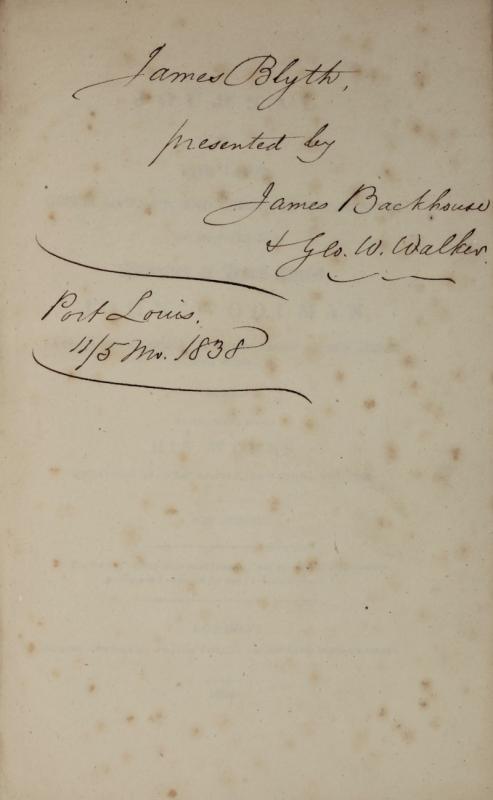 James Blyth,
presented by
James Backhouse
& Geo. W. Walker.
Port Louis.
11/5 Mo. 1838